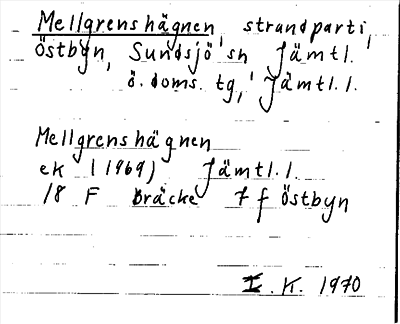 Mellgrenshägnen, strandparti,
Östbyn, Sundsjö sn Jämtl.
ö. doms. tg, Jämtl. l.
Mellgrenshägnen
ek (1969) Jämtl. l.
18 F Bräcke 7 f Östbyn
I. K. 1970